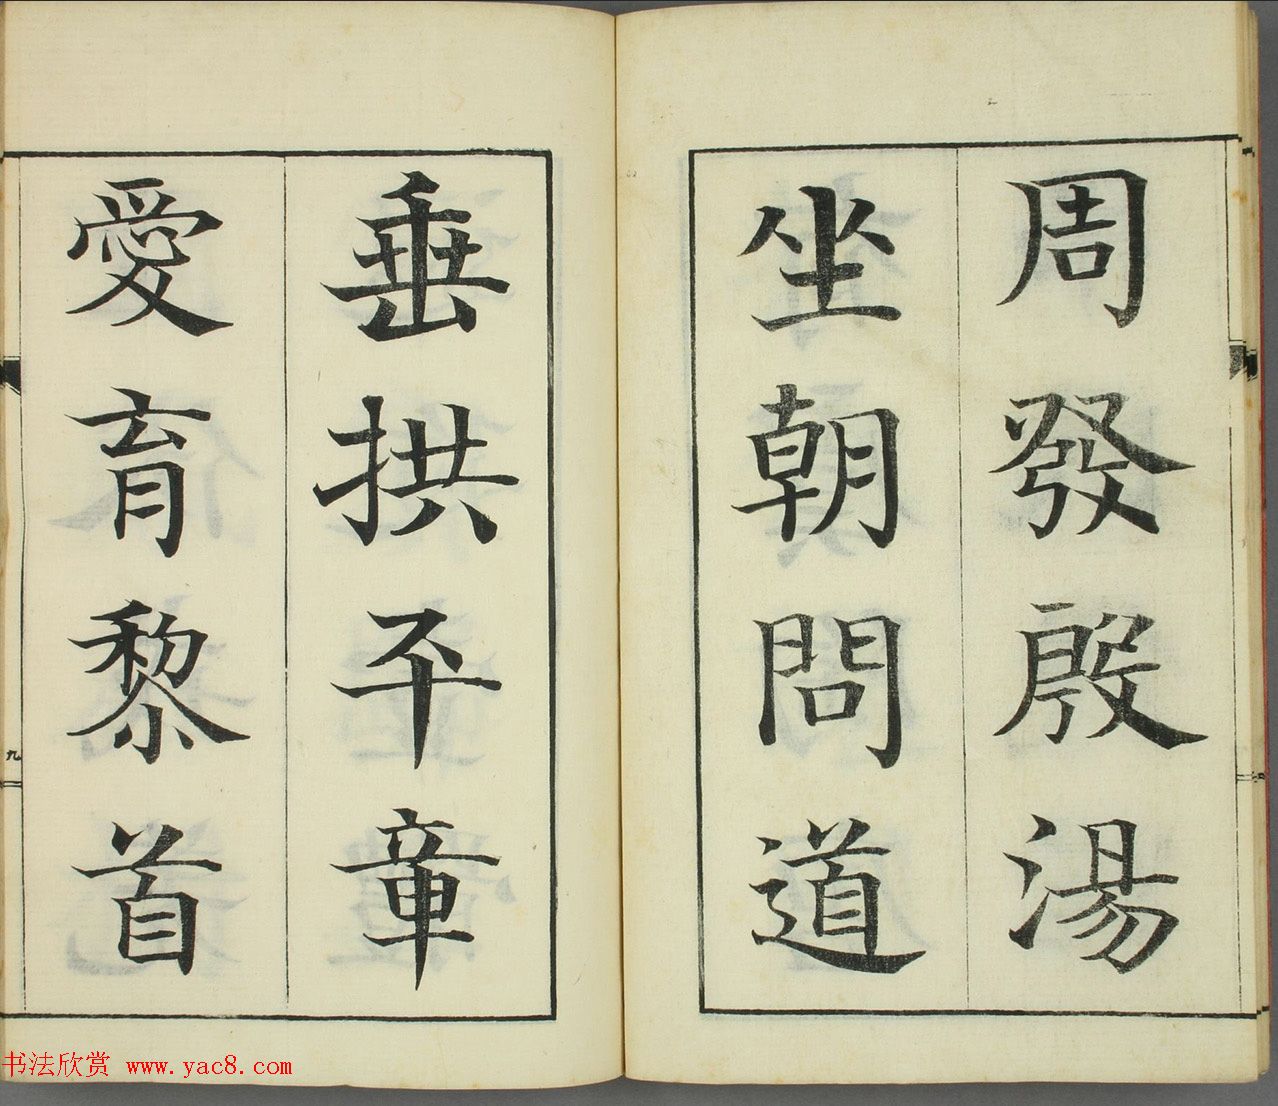 周發殷湯
坐朝問道
垂拱平章
愛育黎首
九
书法欣赏 www.yac8.com